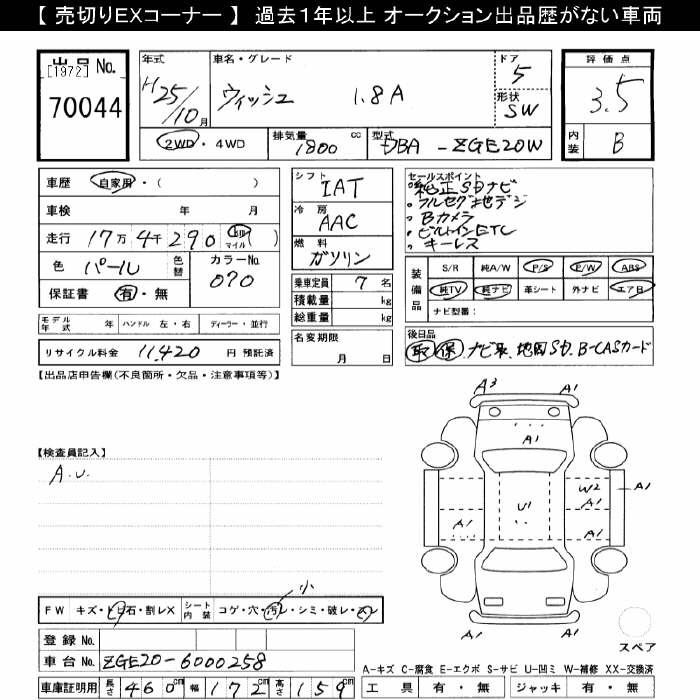 【 売切りEXコーナー 】 過去1年以上 オークション出品歴がない車両
出品 No.
[1972]
70044
年式
H25/10月
車名・グレード
ウィッシュ 1.8A
ドア
5
形状
SW
評価点
3.5
内装
B
2WD・4WD
排気量
1800 cc
型式
DBA-ZGE20W
車歴 自家用・( )
車検 年 月
走行 17万 4千 290 km マイル ( )
色 パール 色替
カラーNo. 070
保証書 有・無
シフト
IAT
冷房
AAC
燃料
ガソリン
乗車定員 7 名
積載量 kg
総重量 kg
名変期限
月 日
セールスポイント
・純正SDナビ
・フルセグ地デジ
・Bカメラ
・ビルトインETC
・キーレス
装備品
S/R 純A/W P/S P/W ABS
純TV 純ナビ 革シート 外ナビ エアB
ナビ型番:
モデル年式 年 ハンドル 左・右 ディーラー・並行
リサイクル料金 11,420 円 預託済
後日品
取 保 ナビ取、地図SD、B-CASカード
【出品店申告欄(不良箇所・欠品・注意事項等)】
【検査員記入】
A.U.
A3 A1
A1
W2
A1
A1
U1
A1
A1
A1 A1
小
FW キズ・トビ石・割レX シート内装 コゲ・穴・汚レ・シミ・破レ・スレ
登録 No.
車台 No. ZGE20-6000258
車庫証明用 長さ 460cm 幅 172cm 高さ 159cm
スペア
A-キズ C-腐食 E-エクボ S-サビ U-凹ミ W-補修 XX-交換済
工具 有・無 ジャッキ 有・無